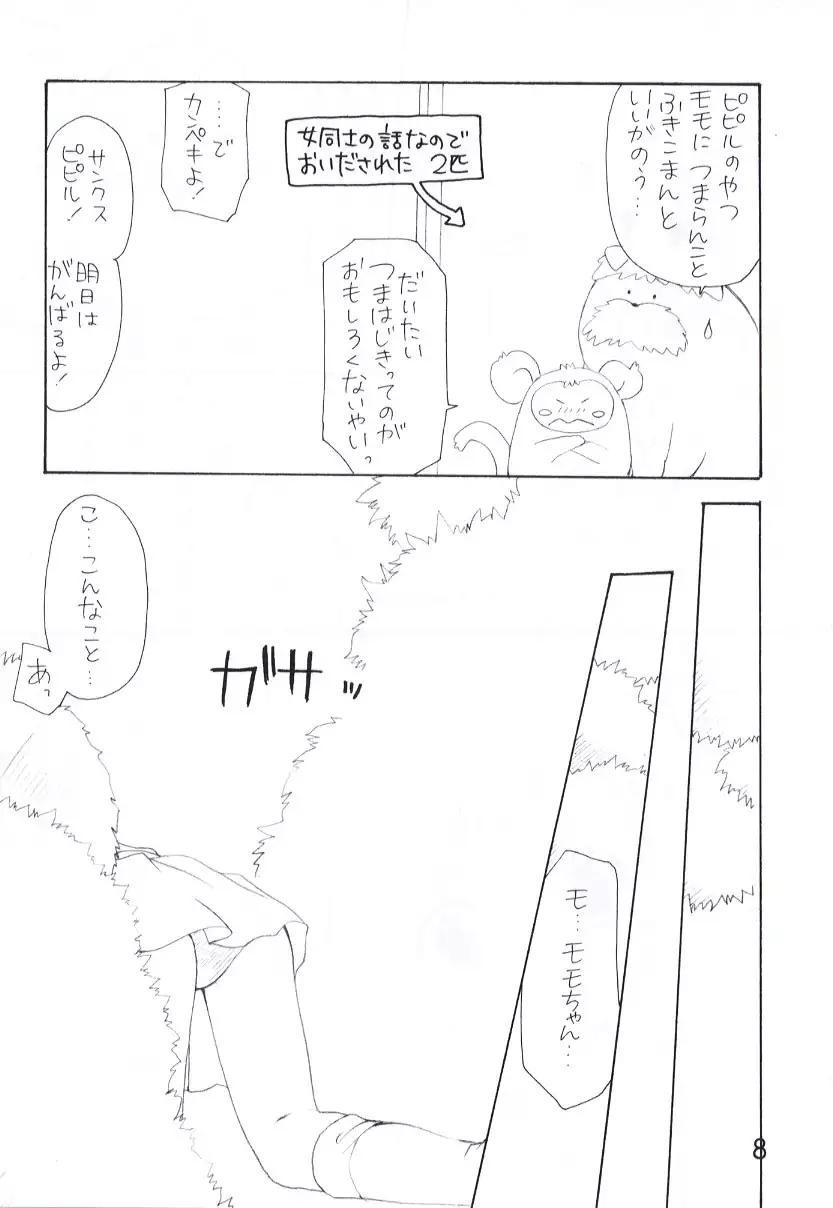 ピピルのやつ
モモに つまらんこと
ふきこまんと
いいがのう…
女同士の話なので
おいだされた 2匹
だいたい
つまはじきってのが
おもしろくないやいっ
……で
カンペキよ!
サンクス
ピピル!
明日は
がんばるよ!
ガサッ
モ… モモちゃん…
こ…こんなこと…
あっ
8